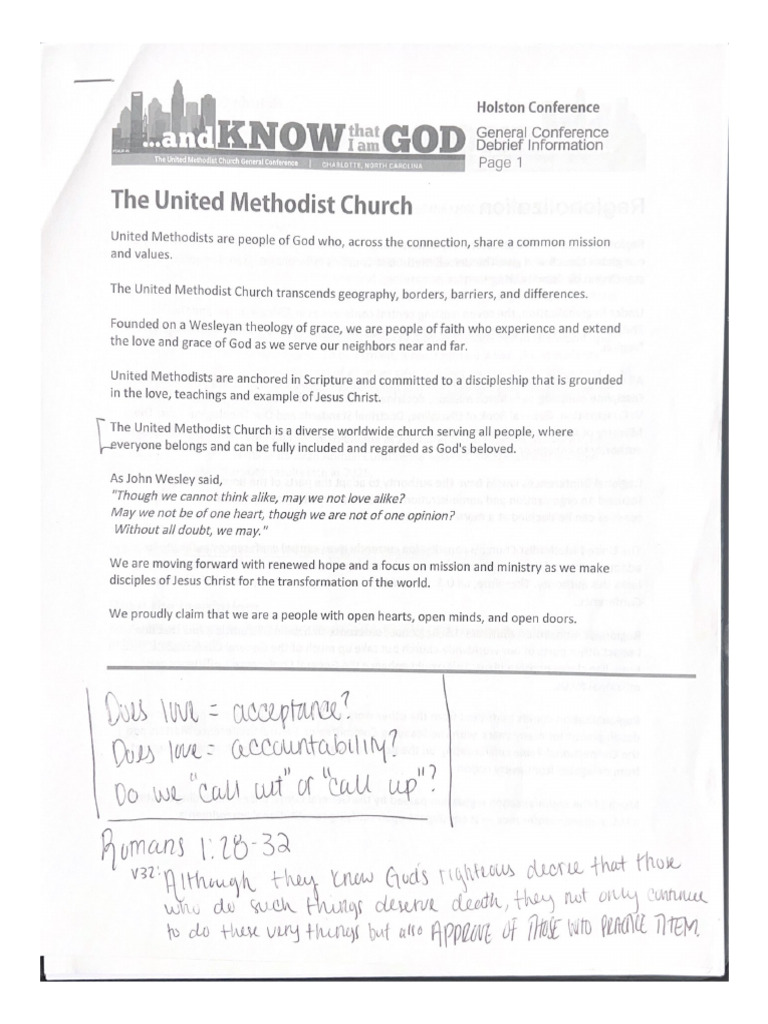 Holston Conference
...and KNOW that I am GOD
General Conference
Debrief Information
The United Methodist Church General Conference | CHARLOTTE, NORTH CAROLINA
Page 1
The United Methodist Church
United Methodists are people of God who, across the connection, share a common mission
and values.
The United Methodist Church transcends geography, borders, barriers, and differences.
Founded on a Wesleyan theology of grace, we are people of faith who experience and extend
the love and grace of God as we serve our neighbors near and far.
United Methodists are anchored in Scripture and committed to a discipleship that is grounded
in the love, teachings and example of Jesus Christ.
The United Methodist Church is a diverse worldwide church serving all people, where
everyone belongs and can be fully included and regarded as God's beloved.
As John Wesley said,
"Though we cannot think alike, may we not love alike?
May we not be of one heart, though we are not of one opinion?
Without all doubt, we may."
We are moving forward with renewed hope and a focus on mission and ministry as we make
disciples of Jesus Christ for the transformation of the world.
We proudly claim that we are a people with open hearts, open minds, and open doors.
Does love = acceptance?
Does love = accountability?
Do we "call out" or "call up"?
Romans 1:28-32
v32: Although they know God's righteous decree that those
who do such things deserve death, they not only continue
to do these very things but also APPROVE OF THOSE WHO PRACTICE THEM.